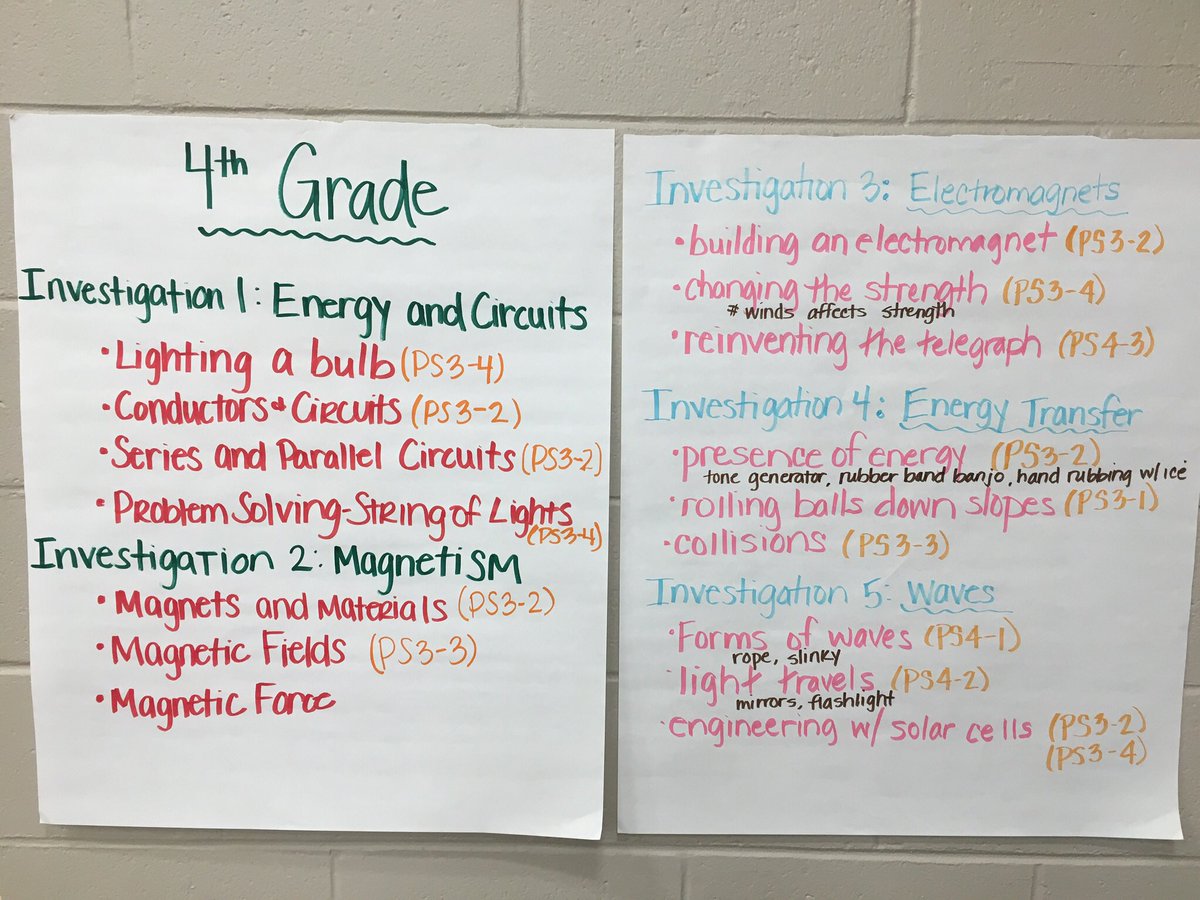 4th Grade
Investigation 1: Energy and Circuits
• Lighting a bulb (PS3-4)
• Conductors & Circuits (PS3-2)
• Series and Parallel Circuits (PS3-2)
• Problem Solving-String of Lights
(PS3-4)
Investigation 2: Magnetism
• Magnets and Materials (PS3-2)
• Magnetic Fields (PS3-3)
• Magnetic Force
Investigation 3: Electromagnets
• building an electromagnet (PS3-2)
• changing the strength (PS3-4)
# winds affects strength
• reinventing the telegraph (PS4-3)
Investigation 4: Energy Transfer
• presence of energy (PS3-2)
tone generator, rubber band banjo, hand rubbing w/ice
• rolling balls down slopes (PS3-1)
• collisions (PS3-3)
Investigation 5: Waves
• Forms of waves (PS4-1)
rope, slinky
• light travels (PS4-2)
mirrors, flashlight
• engineering w/ solar cells (PS3-2)
(PS3-4)